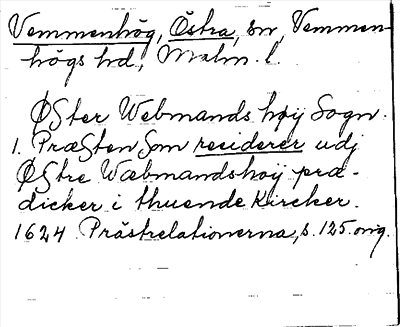 Vemmenhög, Östra, sn, Vemmen-
högs hd, Malm. l.
ØSter Webmands høÿ Sogn.
1. PræSten Som residerer udj
ØStre Wæbmandshøÿ præ-
dicker i thuende Kircker.
1624 Prästrelationerna, s. 125. orig.